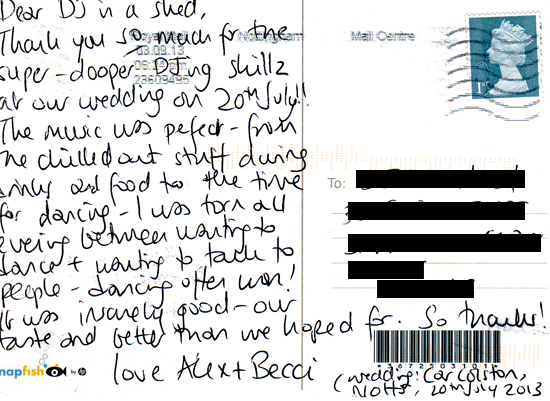 Dear DJ in a shed,
Thank you so much for the
super-dooper DJing skillz
at our wedding on 20th July!!
The music was pefect - from
the chilled out stuff during
drinks and food to the time
for dancing - I was torn all
evening between wanting to
dance + wanting to talk to
people - dancing often won!
It was insanely good - our
taste and better than we hoped for. So thanks!
love Alex + Becci
(wedding: Car Colston,
Notts, 20th July 2013
Royal Mail
Nottingham
Mail Centre
03.09.13
23609495
1st
To:
napfish by hp
*3672503101*